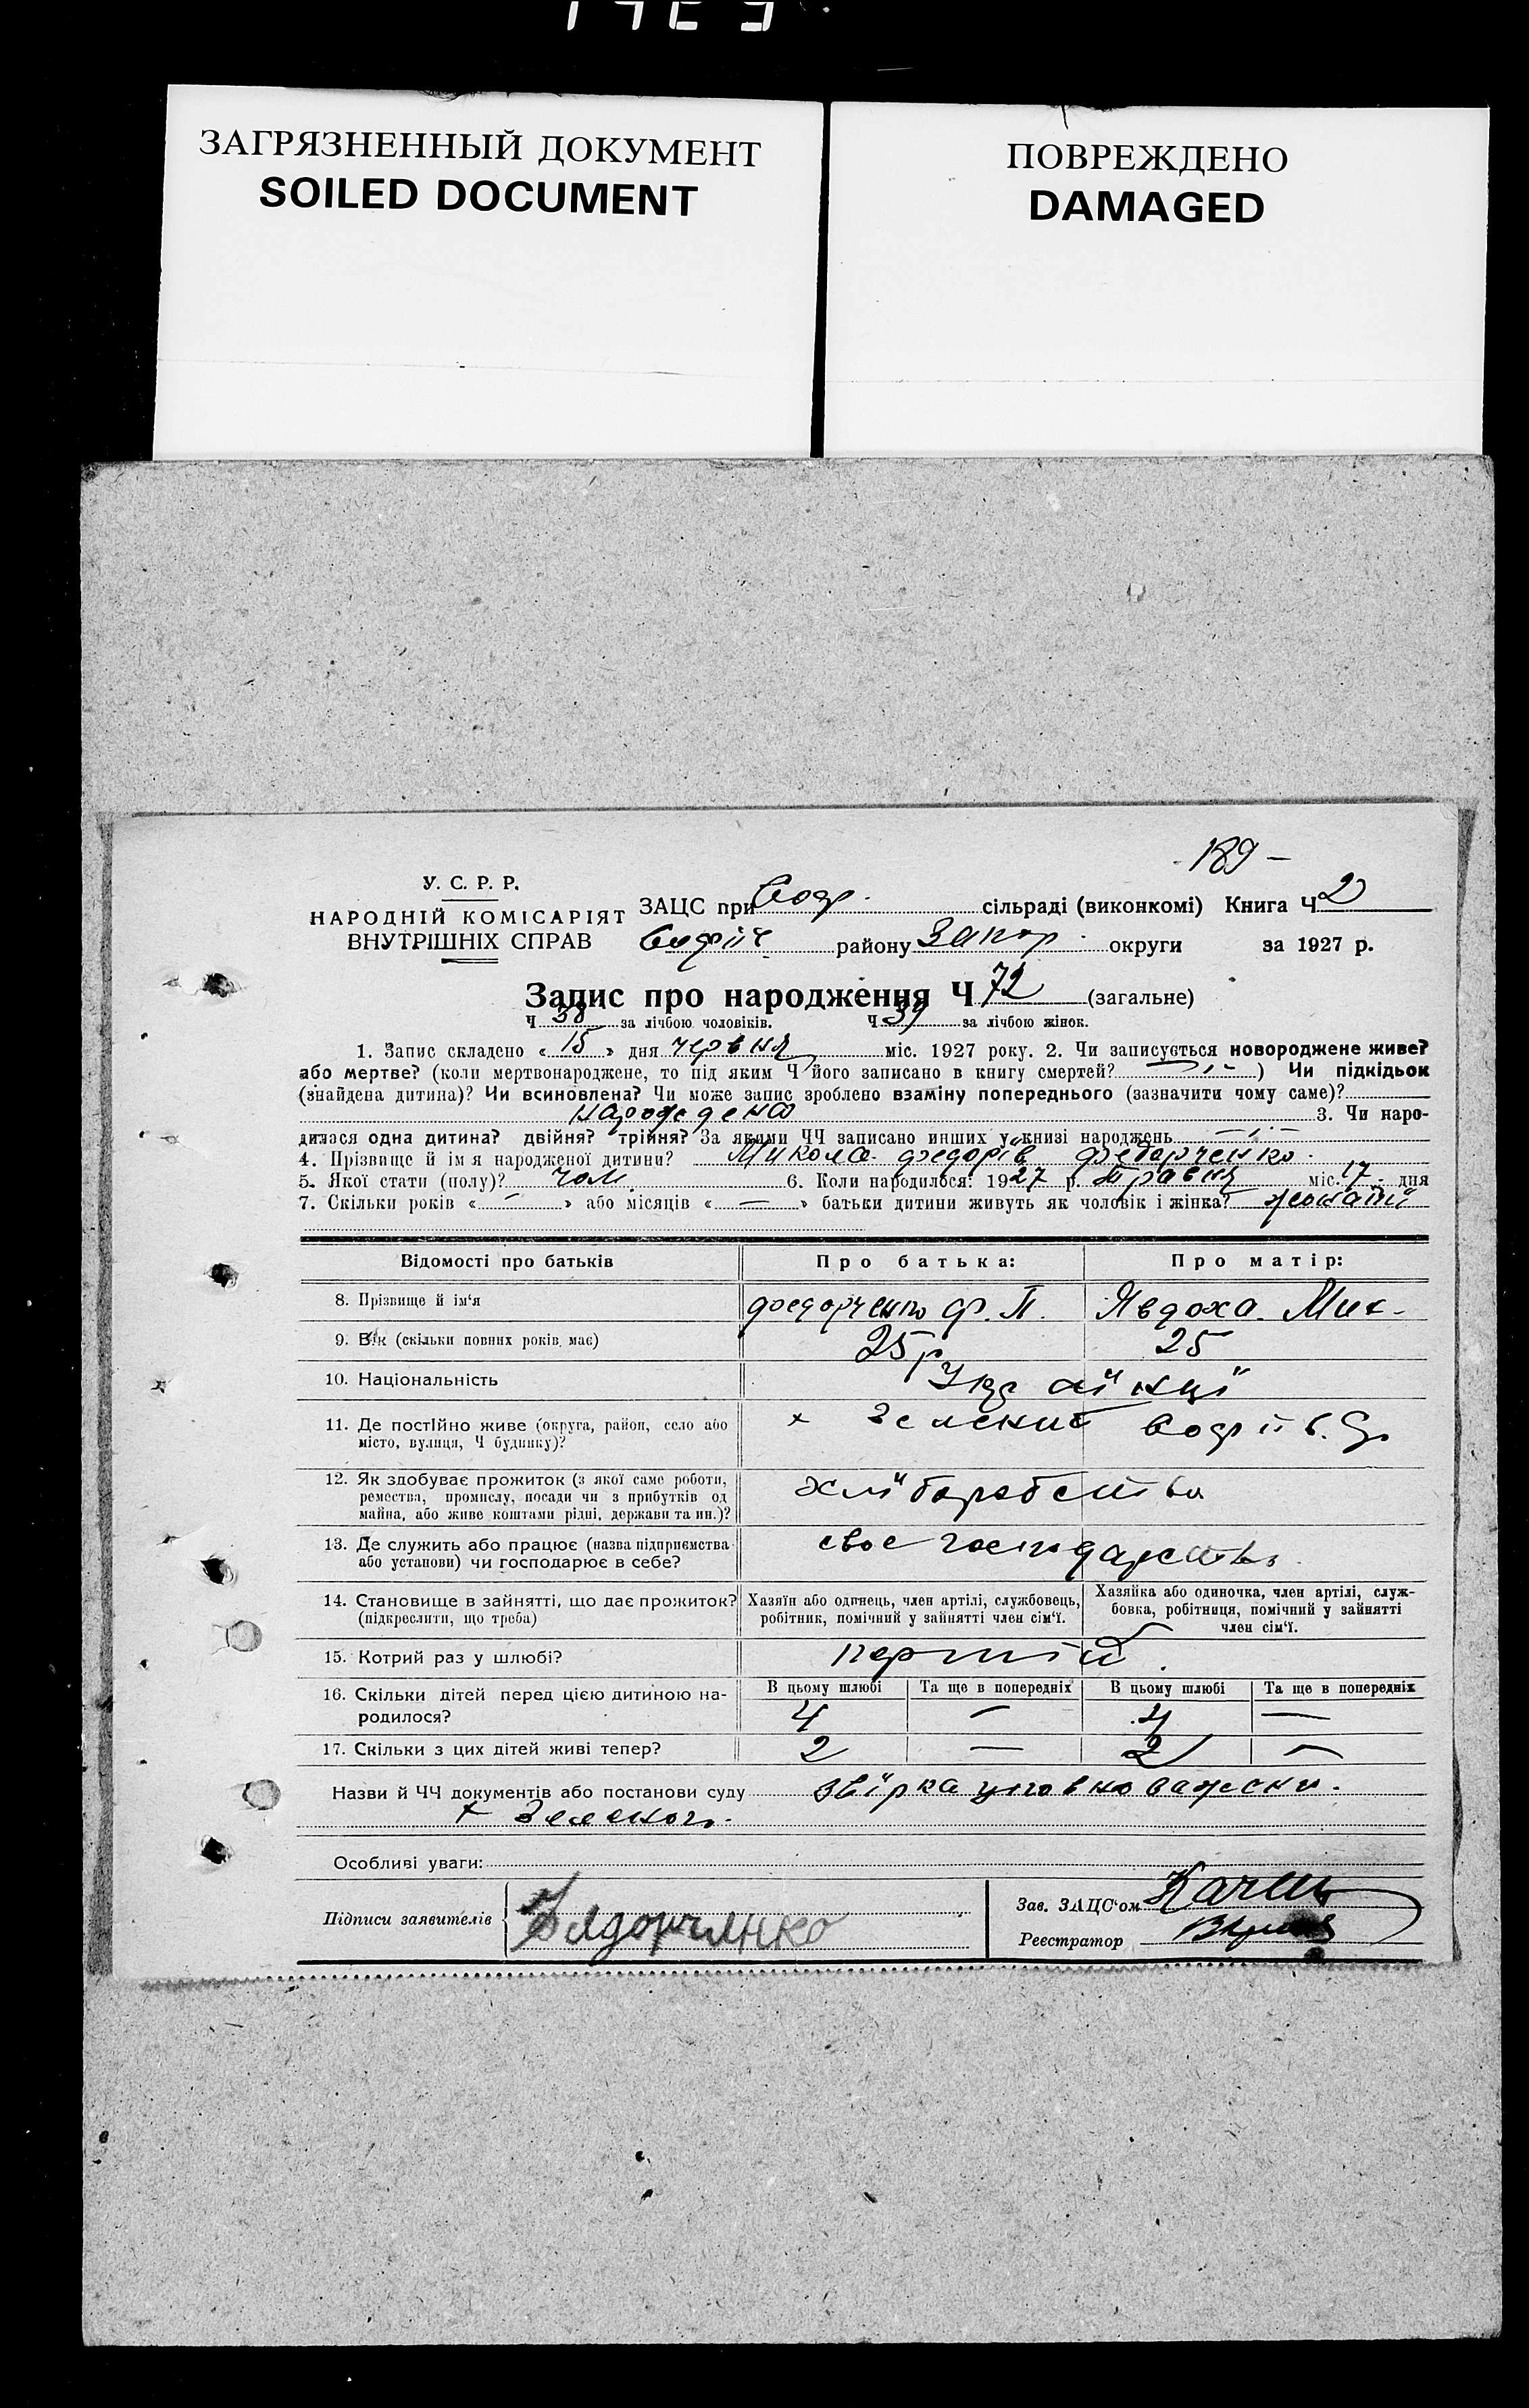 ЗАГРЯЗНЕННЫЙ ДОКУМЕНТ
SOILED DOCUMENT
ПОВРЕЖДЕНО
DAMAGED
189 -
У. С. Р. Р.
НАРОДНІЙ КОМІСАРІЯТ
ВНУТРІШНІХ СПРАВ
ЗАЦС при сільраді (виконкомі) Книга Ч 2
району Запор. округи за 1927 р.
Запис про народження Ч 72 (загальне)
Ч 38 за лічбою чоловіків. Ч 39 за лічбою жінок.
1. Запис складено « 15 » дня червня міс. 1927 року. 2. Чи записується новороджене живе?
або мертве? (коли мертвонароджене, то під яким Ч його записано в книгу смертей? — ) Чи підкідьок
(знайдена дитина)? Чи всиновлена? Чи може запис зроблено взаміну попереднього (зазначити чому саме)?
народжена 3. Чи наро-
дилася одна дитина? двійня? трійня? За якими ЧЧ записано инших у книзі народжень —
4. Прізвище й ім я народженої дитини? Микола федорів федорченко.
5. Якої стати (полу)? чол. 6. Коли народилося: 1927 р. Травня міс. 17 дня
7. Скільки років « — » або місяців « — » батьки дитини живуть як чоловік і жінка? жонаті
Відомості про батьків
Про батька:
Про матір:
8. Прізвище й ім'я
федорченко ф. П.
Явдоха. Мик.
9. Вік (скільки повних років має)
25 р
25
10. Національність
Українці
11. Де постійно живе (округа, район, село або
місто, вулиця, Ч будинку)?
х Зелений
12. Як здобуває прожиток (з якої саме роботи,
ремества, промислу, посади чи з прибутків од
майна, або живе коштами рідні, держави та ин.)?
хліборобство
13. Де служить або працює (назва підприємства
або установи) чи господарює в себе?
своє господарство.
14. Становище в зайнятті, що дає прожиток?
(підкреслити, що треба)
Хазяїн або одинець, член артілі, службовець,
робітник, помічний у зайнятті член сім'ї.
Хазяйка або одиночка, член артілі, служ-
бовка, робітниця, помічний у зайнятті
член сім'ї.
15. Котрий раз у шлюбі?
перший.
16. Скільки дітей перед цією дитиною на-
родилося?
В цьому шлюбі
Та ще в попередніх
В цьому шлюбі
Та ще в попередніх
4 — 4 —
17. Скільки з цих дітей живі тепер?
2 — 2 —
Назви й ЧЧ документів або постанови суду звірка уповноважени.
х Зеленого.
Особливі уваги:
Підписи заявителів
Зав. ЗАЦС'ом
Реєстратор